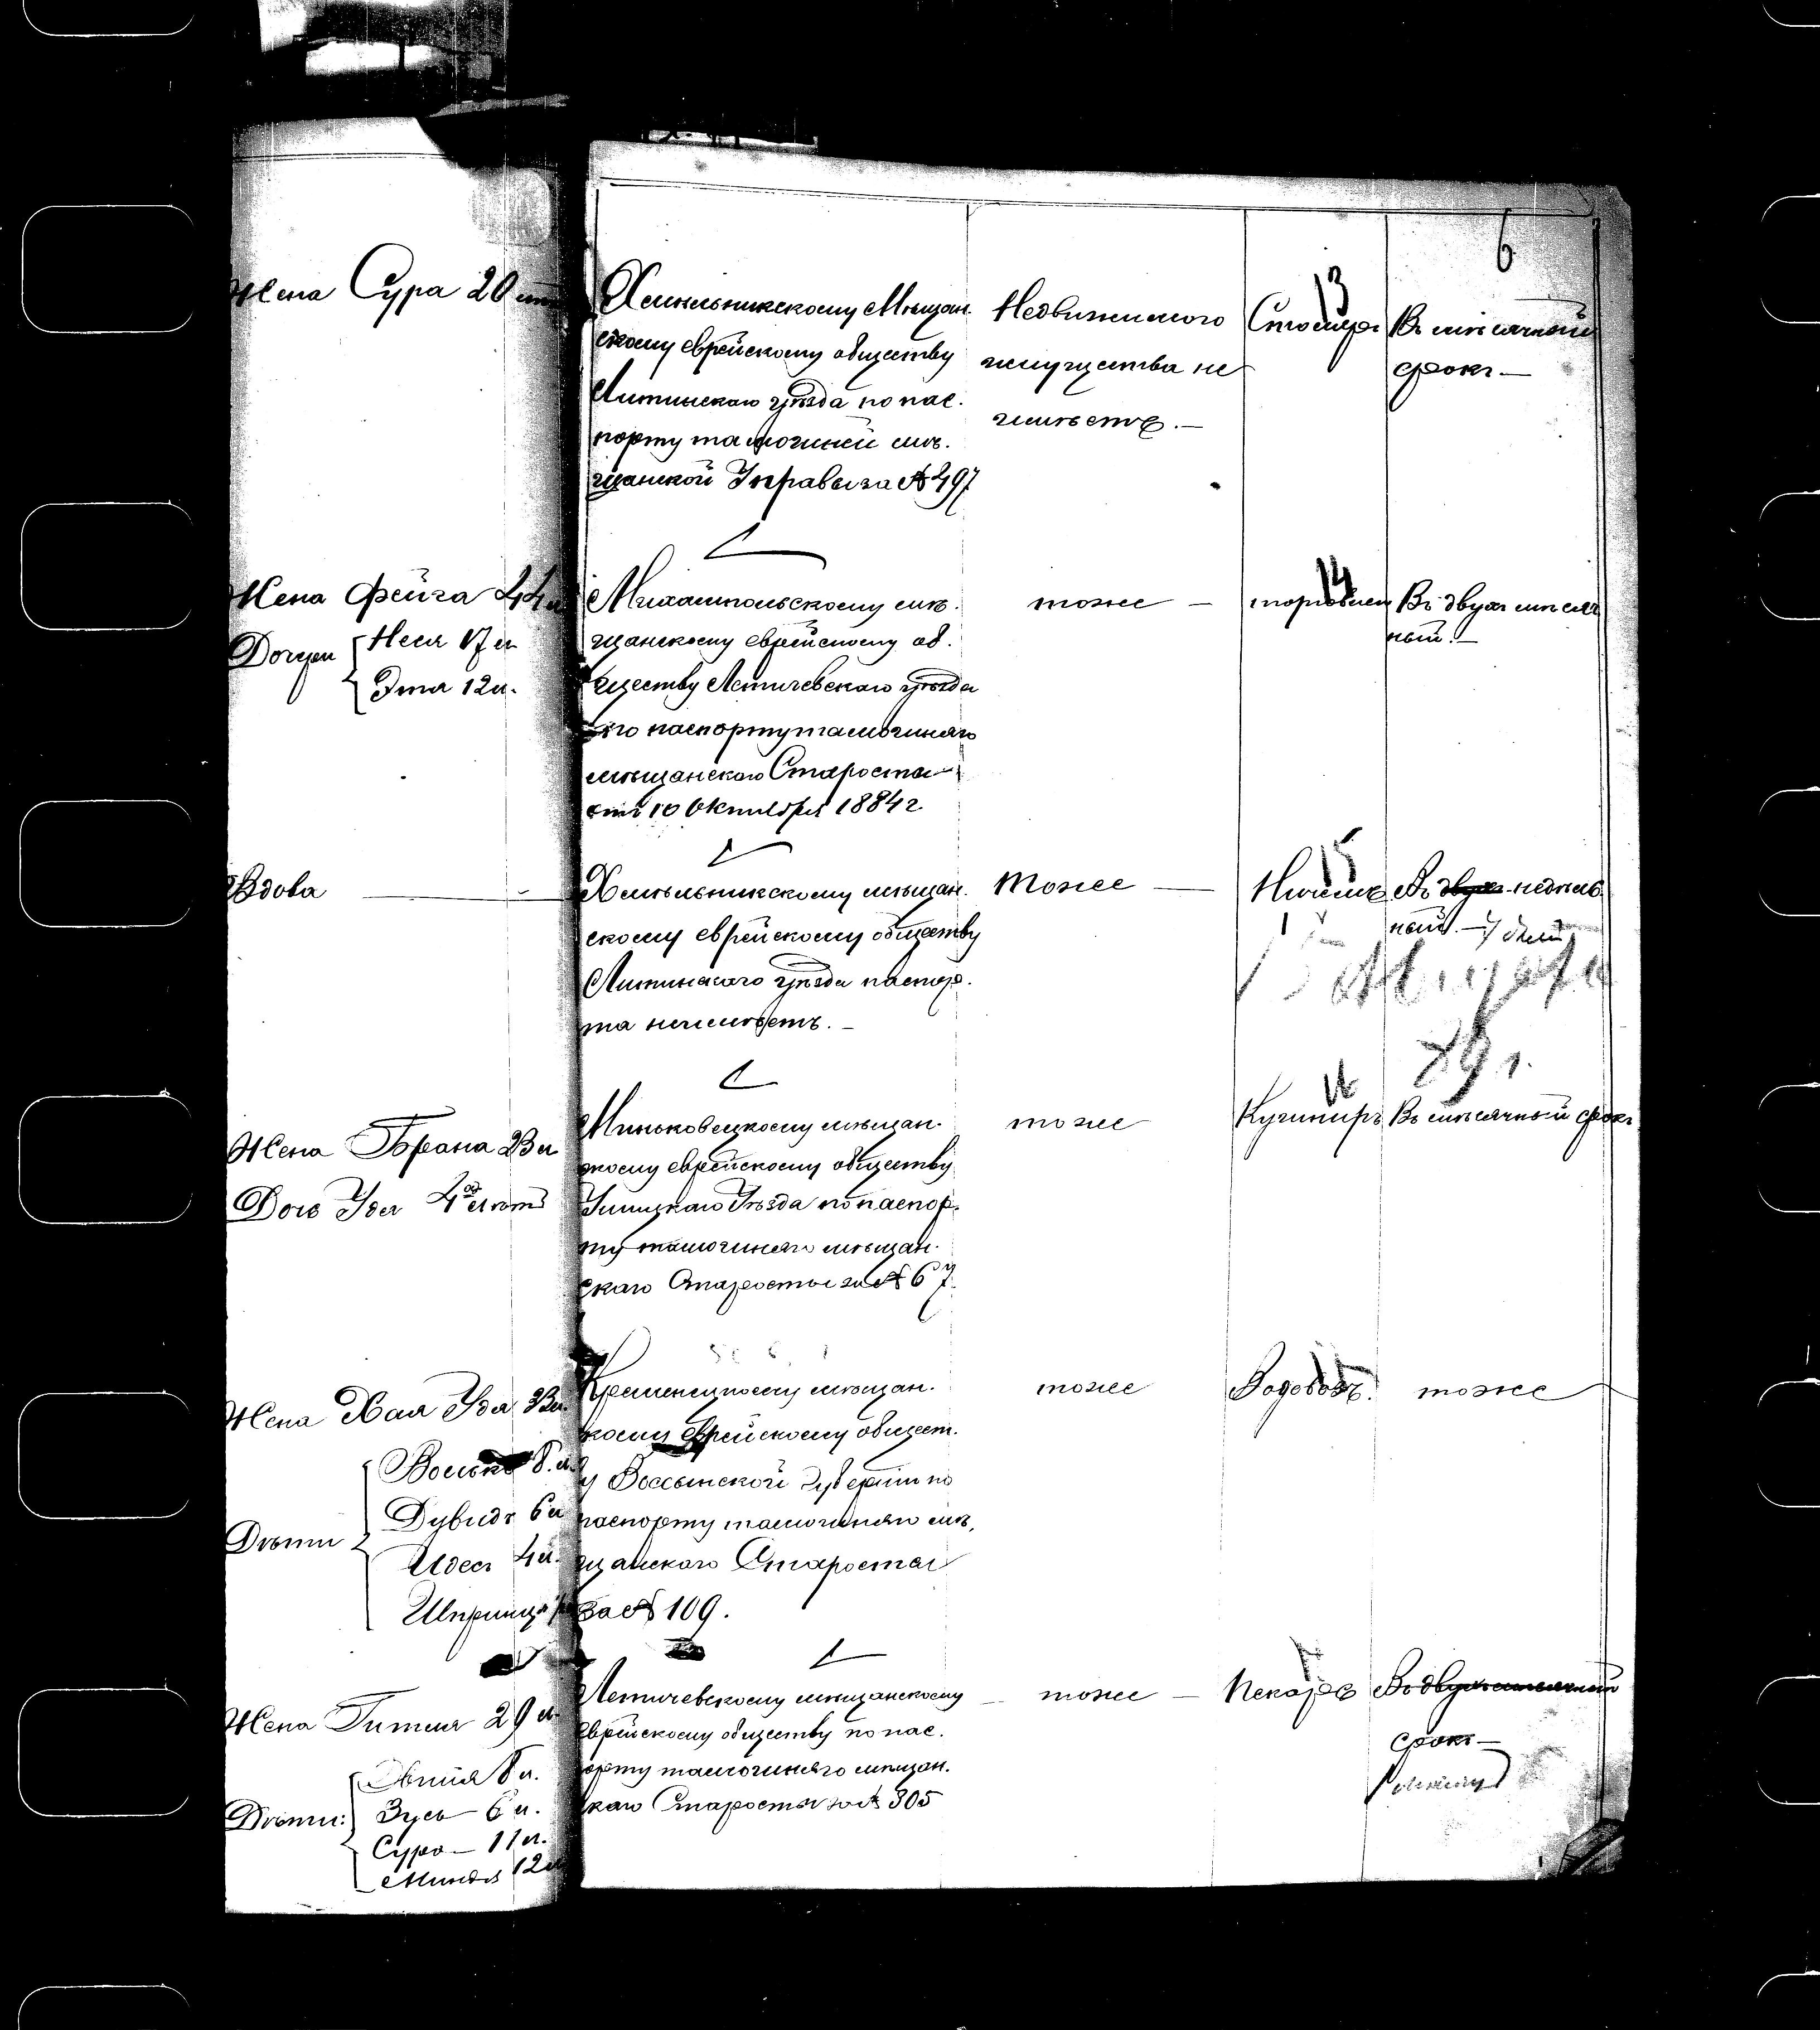 6
13
Жена Сура 20 лѣтъ
Хмѣльникскому Мѣщан-
скому еврейскому обществу
Литинскаго уѣзда по пас-
порту тамошней мѣ-
щанской Управы за № 497
Недвижимого
имущества не
имѣетъ. —
Столяръ
Въ мѣсячный
срокъ —
14
Жена Фейга 44 л
Дочери
Неся 17 л
Эта 12 л.
Михампольскому мѣ-
щанскому еврейскому об-
ществу Летичевскаго уѣзда
по паспорту тамошняго
мѣщанскаго Старосты
отъ 10 Октября 1884 г.
тоже —
торговлей
Въ двухъ мѣсяч
ный. —
15
Вдова
Хмѣльникскому мѣщан-
скому еврейскому обществу
Литинскаго уѣзда паспор-
та неимѣетъ. —
Тоже —
Въ двухъ недѣль
ный. — 7 дней
89 г.
16
Жена Брана 23 л
Дочь Удя 4 лѣтъ
Миньковецкому мѣщан-
скому еврейскому обществу
Ушицкаго Уѣзда по паспор-
ту тамошняго мѣщан-
скаго Старосты за № 67
тоже
Кушниръ
Въ мѣсячный срокъ
Жена Хая Удя
Дѣти
8 л.
Дувидъ 6 л
Идесъ 4 л.
Шпринца
Кременецкому мѣщан-
скому еврейскому общест-
у Волынской Губерніи по
паспорту тамошняго мѣ-
щанскаго Старосты
за № 109.
тоже
Водовозъ.
тоже
Жена Гитля 29 л
Дѣти:
8 л.
Зусь — 6 л.
Сура — 11 л.
Миндля 12 л
Летичевскому мѣщанскому
еврейскому обществу по пас-
порту тамошняго мѣщан-
скаго Старосты за № 305
— тоже —
Пекарь
Въ двухмѣсячный
срокъ —